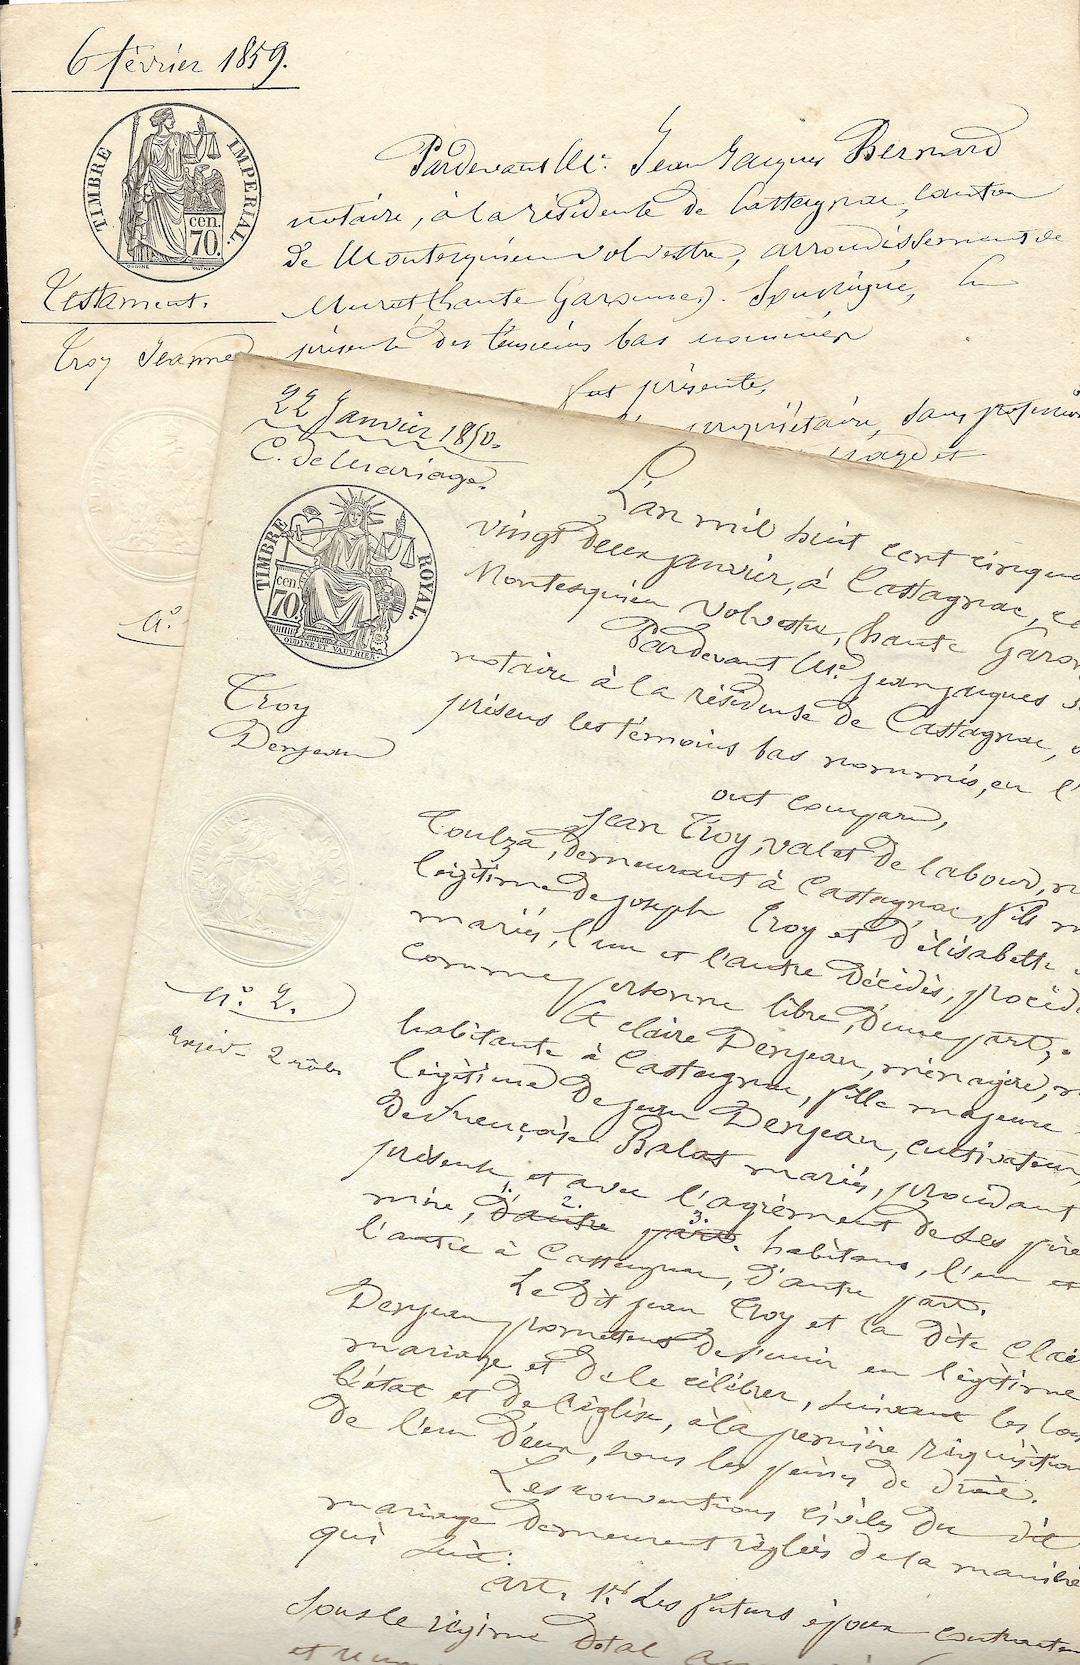 6 février 1859.
TIMBRE IMPERIAL.
cen. 70.
Testament.
Troy Jeanne
Pardevant Me. Jean Jacques Bernard
notaire, à la résidence de Castagnac, canton
de Montesquieu volvestre, arrondissement de
Muret (haute Garonne). Soussigné, en
présence des temoins bas nommés
fut présente,
propriétaire, sans profession
22 Janvier 1850.
C. de Mariage.
TIMBRE ROYAL.
cen. 70.
OUDINE ET VAUTHIER.
Troy
Denjean
n.o 2.
2 rôles
L'an mil huit cent cinqua
vingt deux janvier, à Castagnac, ca
Montesquieu volvestre, (haute Garon
Pardevant Me. jean jaques
notaire à la résidense de Castagnac,
présens les témoins bas nommés, en l'
ont comparu,
jean Troy, valet de labour, n
Toulza, demeurant à Castagnac, fils m
légitime de joseph Troy et d'élisabeth
mariés, l'un et l'autre décédés, procéda
comme personne libre, d'une part;
Et claire Denjean, ménagère, n
habitante à Castagnac, fille majeure
légitime de jean Denjean, cultivateur,
de françoise Balas mariés, procédant
présente, et avec l'agrément de ses père
mère, d'autre part. habitans, l'un et
1. 2. 3.
l'autre à Castagnac, d'autre part.
Le dit jean Troy et la dite Clai
Denjean promettent de s'unir en légitime
mariage et de le célébrer, suivant les lois
l'état et de l'église, à la première réquisition
de l'un d'eux, sous les peines de droit.
Les conventions civiles du dit
mariage demeurent réglées de la manière
qui suit:
art. 1er. Les futurs époux contractent
sous le régime dotal
et